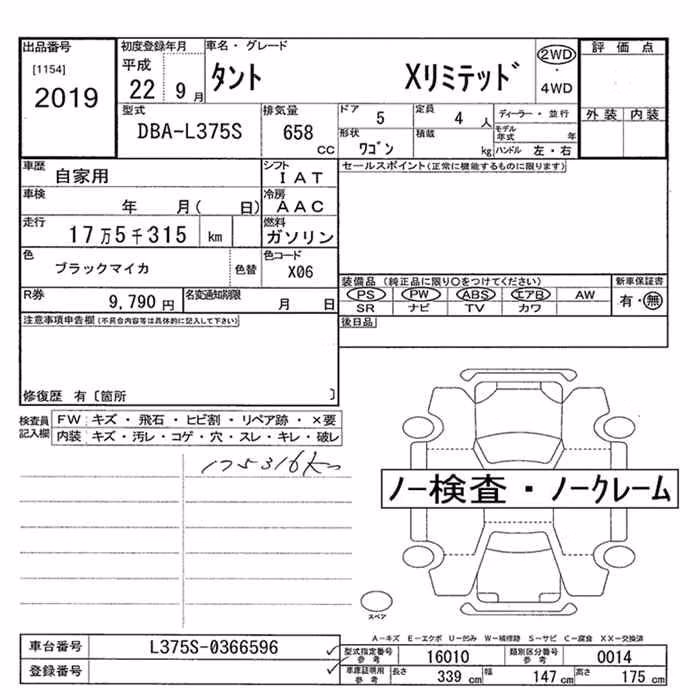 出品番号 初度登録年月 車名・グレード 評価点
[1154] 平成 タント Xリミテッド 2WD ・ 4WD
2019 22 9月
型式 排気量 ドア 5 定員 4人 ディーラー・並行 外装 内装
DBA-L375S 658 cc 形状 ワゴン 積載 kg モデル年式 年
ハンドル 左・右
車歴 自家用 シフト IAT セールスポイント(正常に機能するものに限ります)
車検 年 月( 日) 冷房 AAC
走行 17万5千315 km 燃料 ガソリン
色 ブラックマイカ 色替 色コード X06
装備品 (純正品に限り○をつけてください) 新車保証書
R券 9,790円 名変通知期限 月 日 PS PW ABS エアB AW 有・無
SR ナビ TV カワ
注意事項申告欄(不具合内容等は具体的に記入して下さい) 後日品
修復歴 有〔箇所 〕
検査員記入欄 FW キズ・飛石・ヒビ割・リペア跡・×要
内装 キズ・汚レ・コゲ・穴・スレ・キレ・破レ
175316km
ノー検査・ノークレーム
スペア
A-キズ E-エクボ U-凹み W-補修跡 S-サビ C-腐食 XX-交換済
車台番号 L375S-0366596 型式指定番号 参考 16010 類別区分番号 参考 0014
登録番号 車庫証明用 参考 長さ 339cm 幅 147cm 高さ 175cm